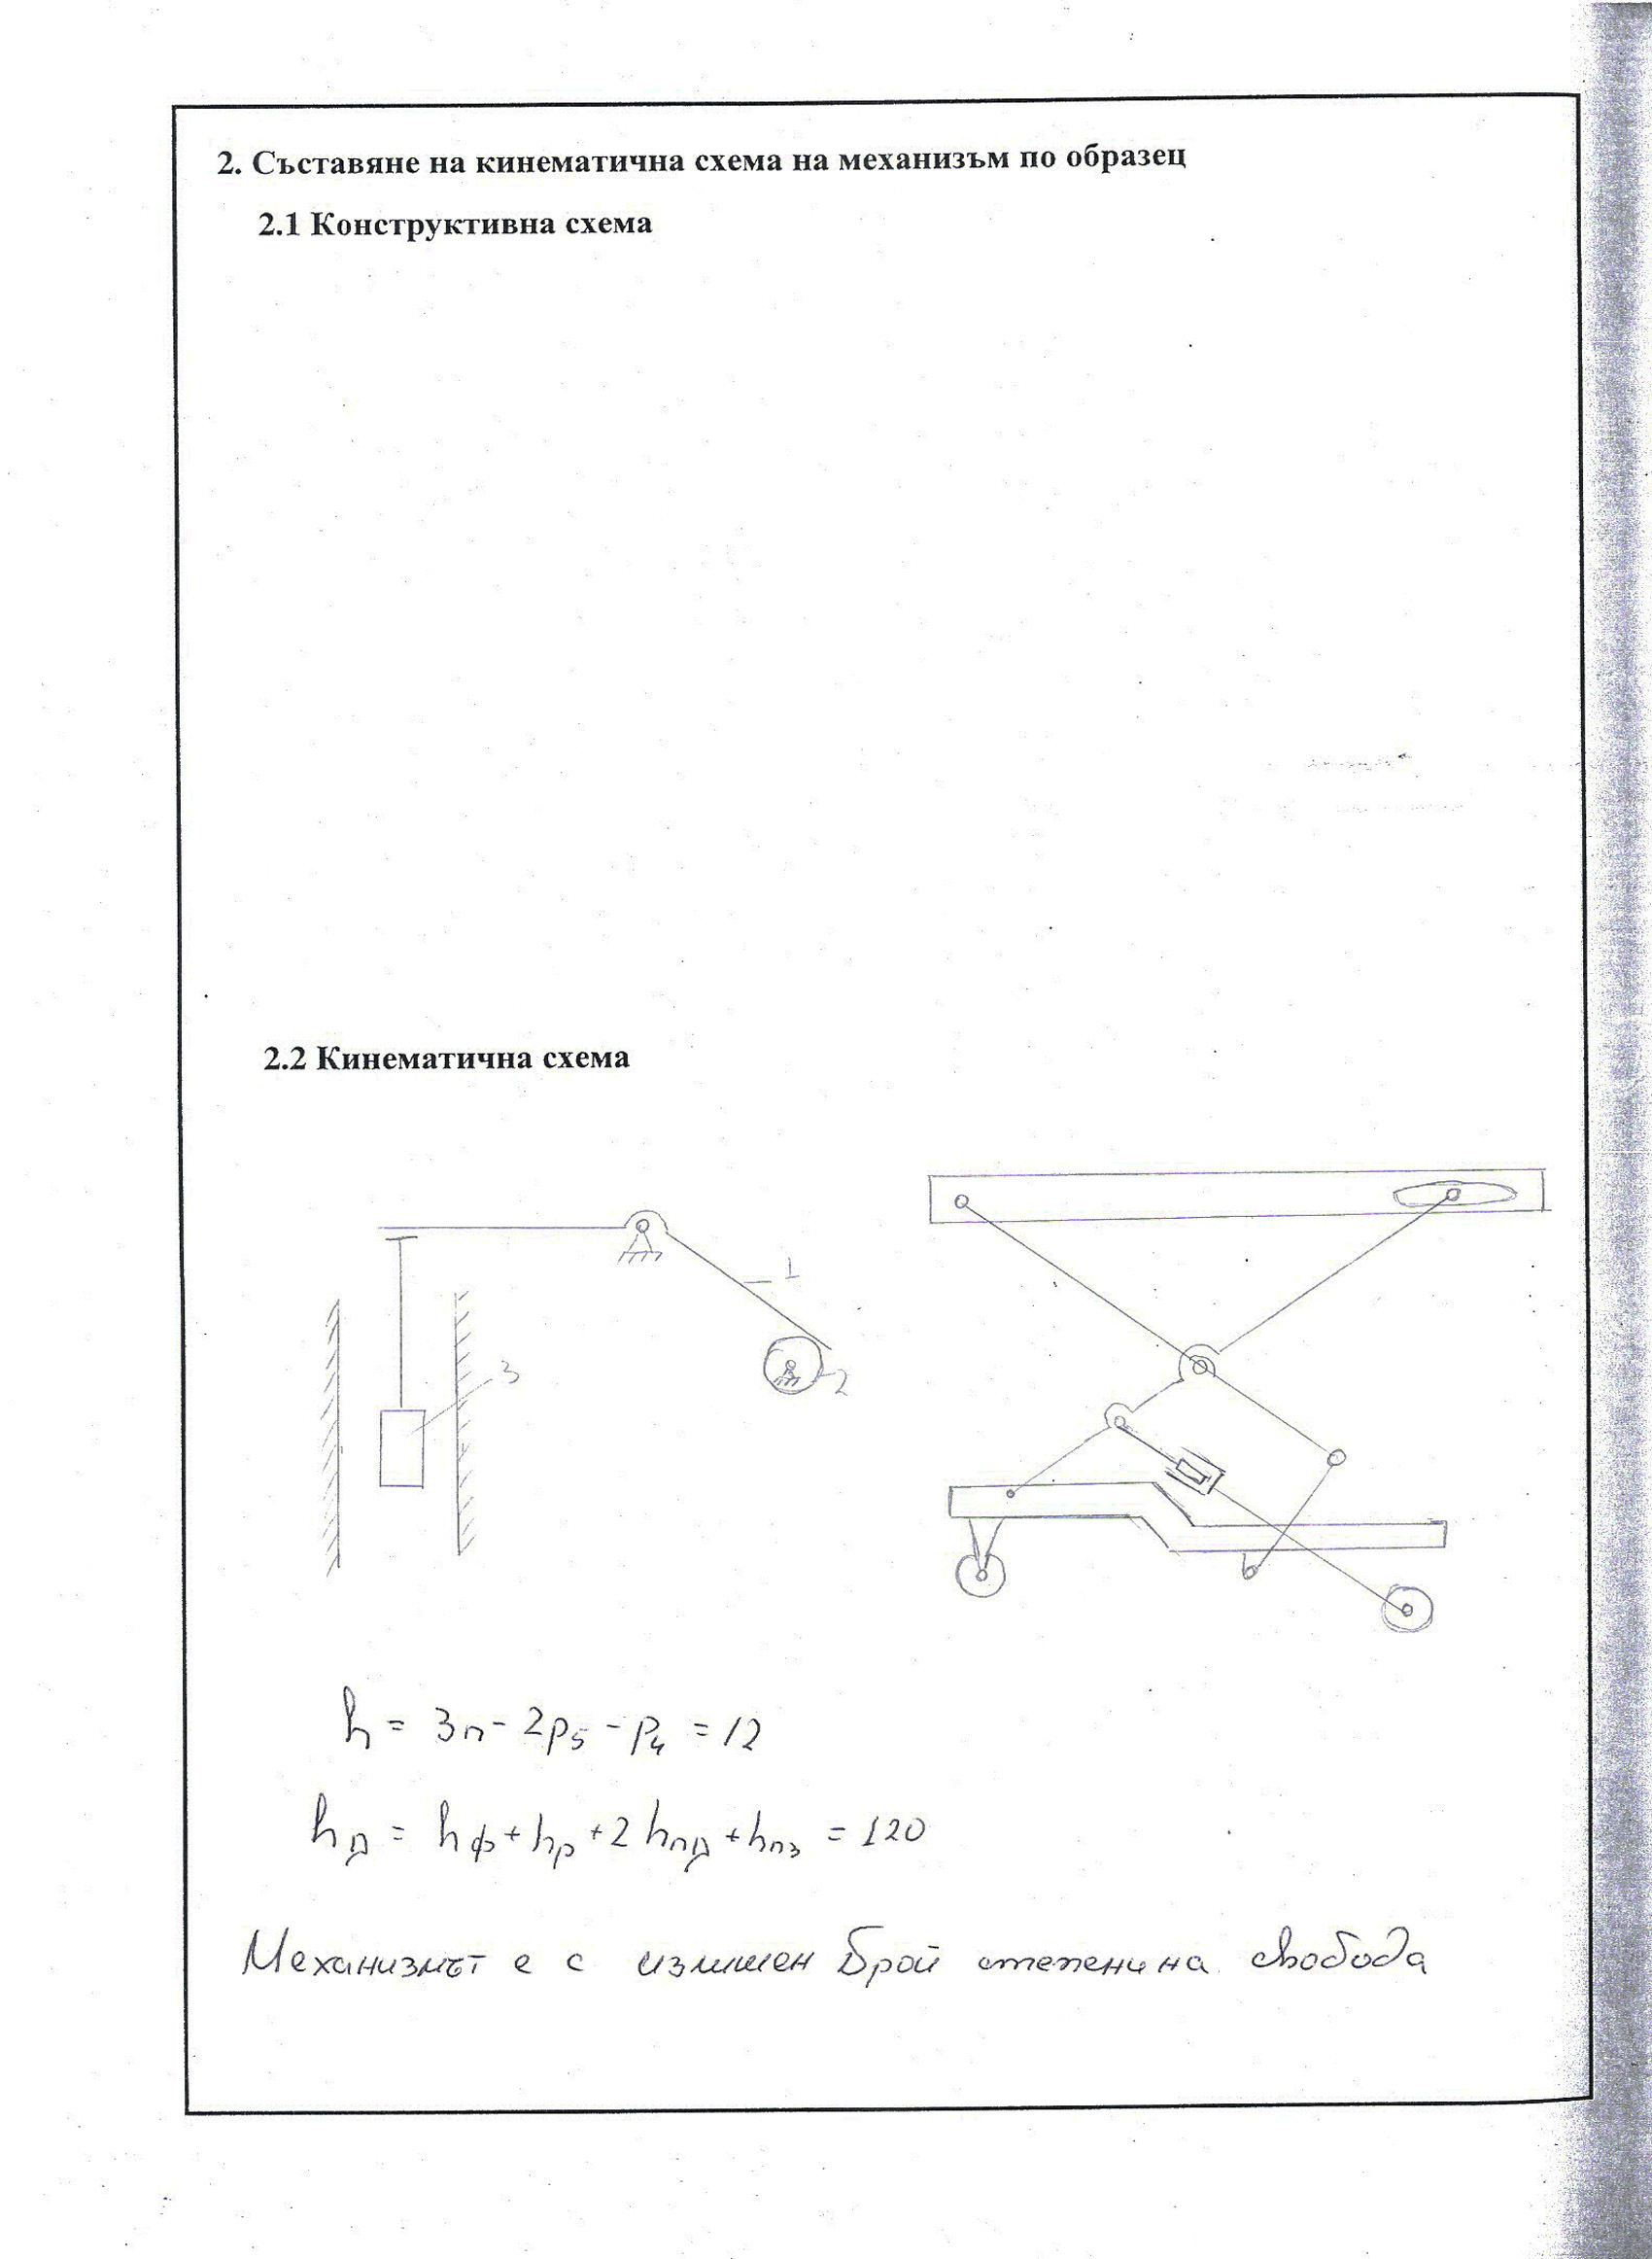 2. Съставяне на кинематична схема на механизъм по образец
2.1 Конструктивна схема
2.2 Кинематична схема
1
2
3
h = 3n - 2p₅ - p₄ = 12
hд = hф + hр + 2 hпд + hпз = 120
Механизмът е с излишен брой степени на свобода